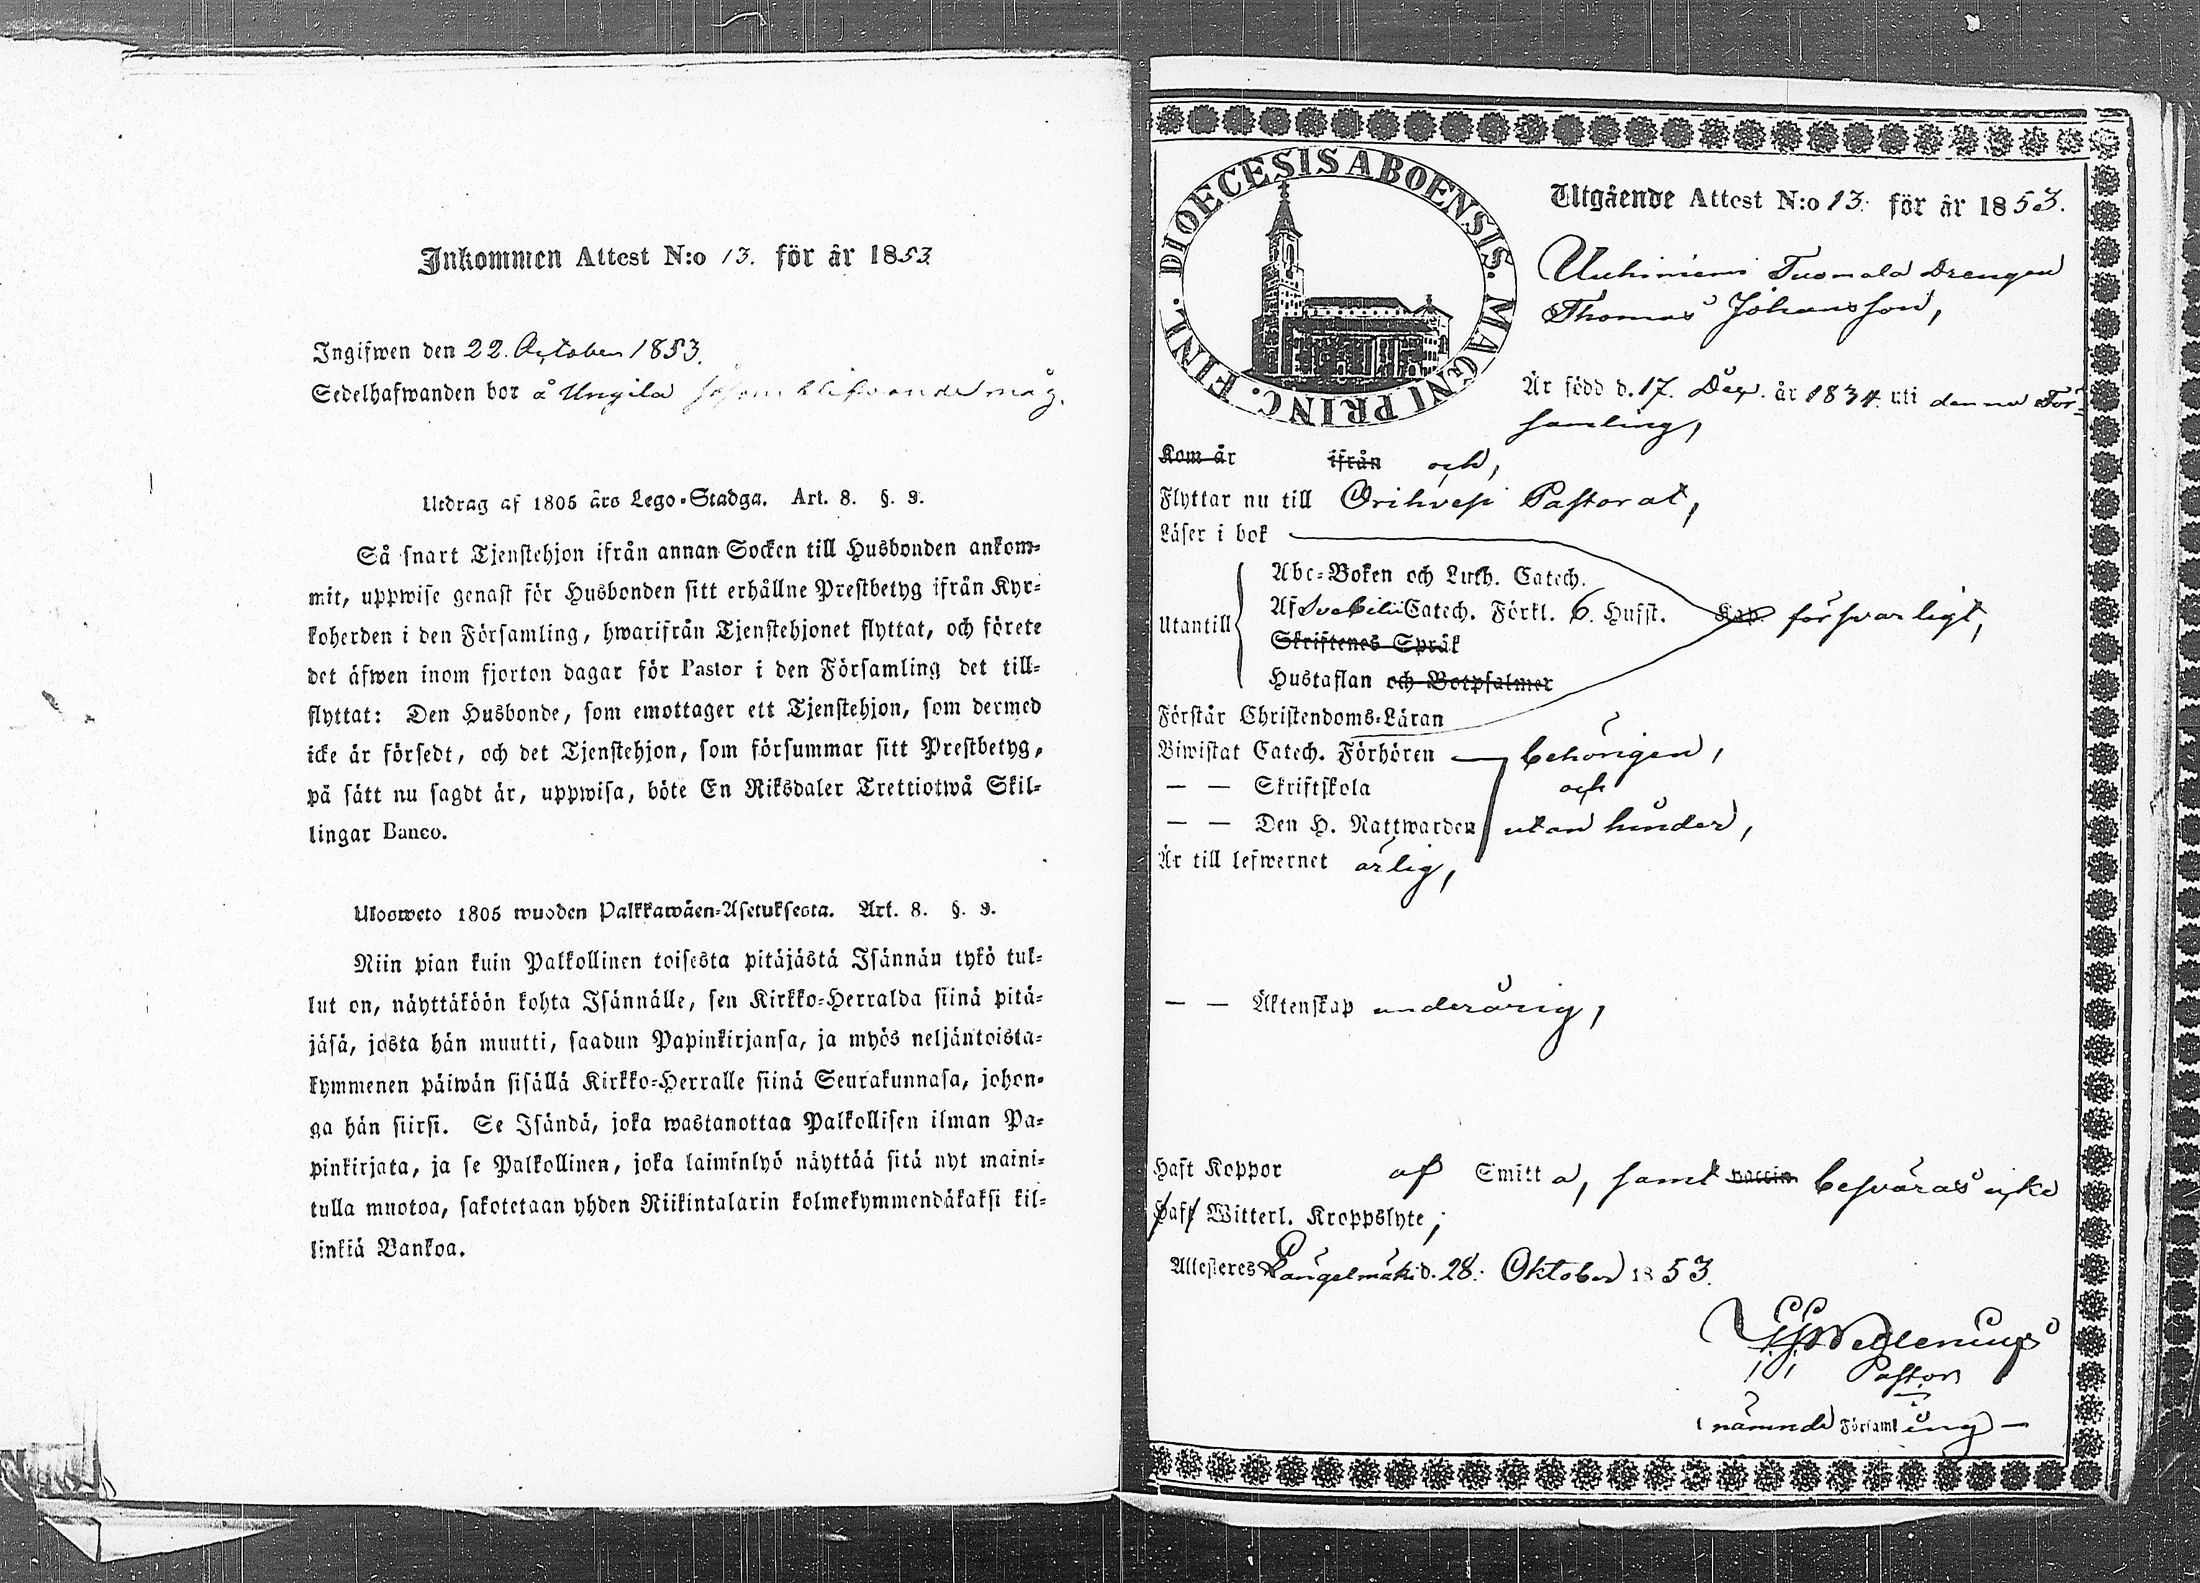 Inkommen Attest N:o 13. för år 1853.
Ingifwen den 22. October 1853.
Sedelhafwanden bor å Ungila såsom blifvande måg.
Utdrag af 1805 års Lego-Stadga. Art. 8. §. 9.
Så snart Tjenstehjon ifrån annan Socken till Husbonden ankom-
mit, uppwise genast för Husbonden sitt erhållne Prestbetyg ifrån Kyr-
koherden i den Församling, hwarifrån Tjenstehjonet flyttat, och förete
det äfwen inom fjorton dagar för Pastor i den Församling det till-
flyttat: Den Husbonde, som emottager ett Tjenstehjon, som dermed
icke är försedt, och det Tjenstehjon, som försummar sitt Prestbetyg,
på sätt nu sagdt är, uppwisa, böte En Riksdaler Trettiotwå Skil-
lingar Banco.
Ulosweto 1805 wuoden Palkkawäen-Asetuksesta. Art. 8. §. 9.
Niin pian kuin Palkollinen toisesta pitäjästä Isännän tykö tul-
lut on, näyttäköön kohta Isännälle, sen Kirkko-Herralda siinä pitä-
jäsä, josta hän muutti, saadun Papinkirjansa, ja myös neljäntoista-
kymmenen päiwän sisällä Kirkko-Herralle siinä Seurakunnasa, johon-
ga hän siirsi. Se Isändä, joka wastanottaa Palkollisen ilman Pa-
pinkirjata, ja se Palkollinen, joka laiminlyö näyttää sitä nyt maini-
tulla muotoa, sakotetaan yhden Riikintalarin kolmekymmendäkaksi kil-
linkiä Bankoa.
DIOECESIS ABOENSIS. MAGNI PRINC. FINL.
Utgående Attest N:o 13. för år 1853.
Uuhiniemi Tuomala Drengen
Thomas Johansson,
Är född d. 17. Dec. år 1834. uti denna För-
samling,
Kom år ifrån och,
Flyttar nu till Orihvesi Pastorat,
Läser i bok
Abc-Boken och Luth. Catech.
Utantill Af Svebilii Catech. Förkl. 6. Hufst. Kap. försvarligt,
Skriftenes Språk
Hustaflan och Botpsalmer
Förstår Christendoms-Läran
Biwistat Catech. Förhören behörigen,
— — Skriftskola och
— — Den H. Nattwarden utan hinder,
Är till lefwernet ärlig,
— — Äktenskap underårig,
Haft Koppor af Smitta, samt vaccin besväras icke
Haft Witterl. Kroppslyte;
Attesteres Längelmäki d. 28. Oktober 1853.
Pastor
i nämnde Församling —